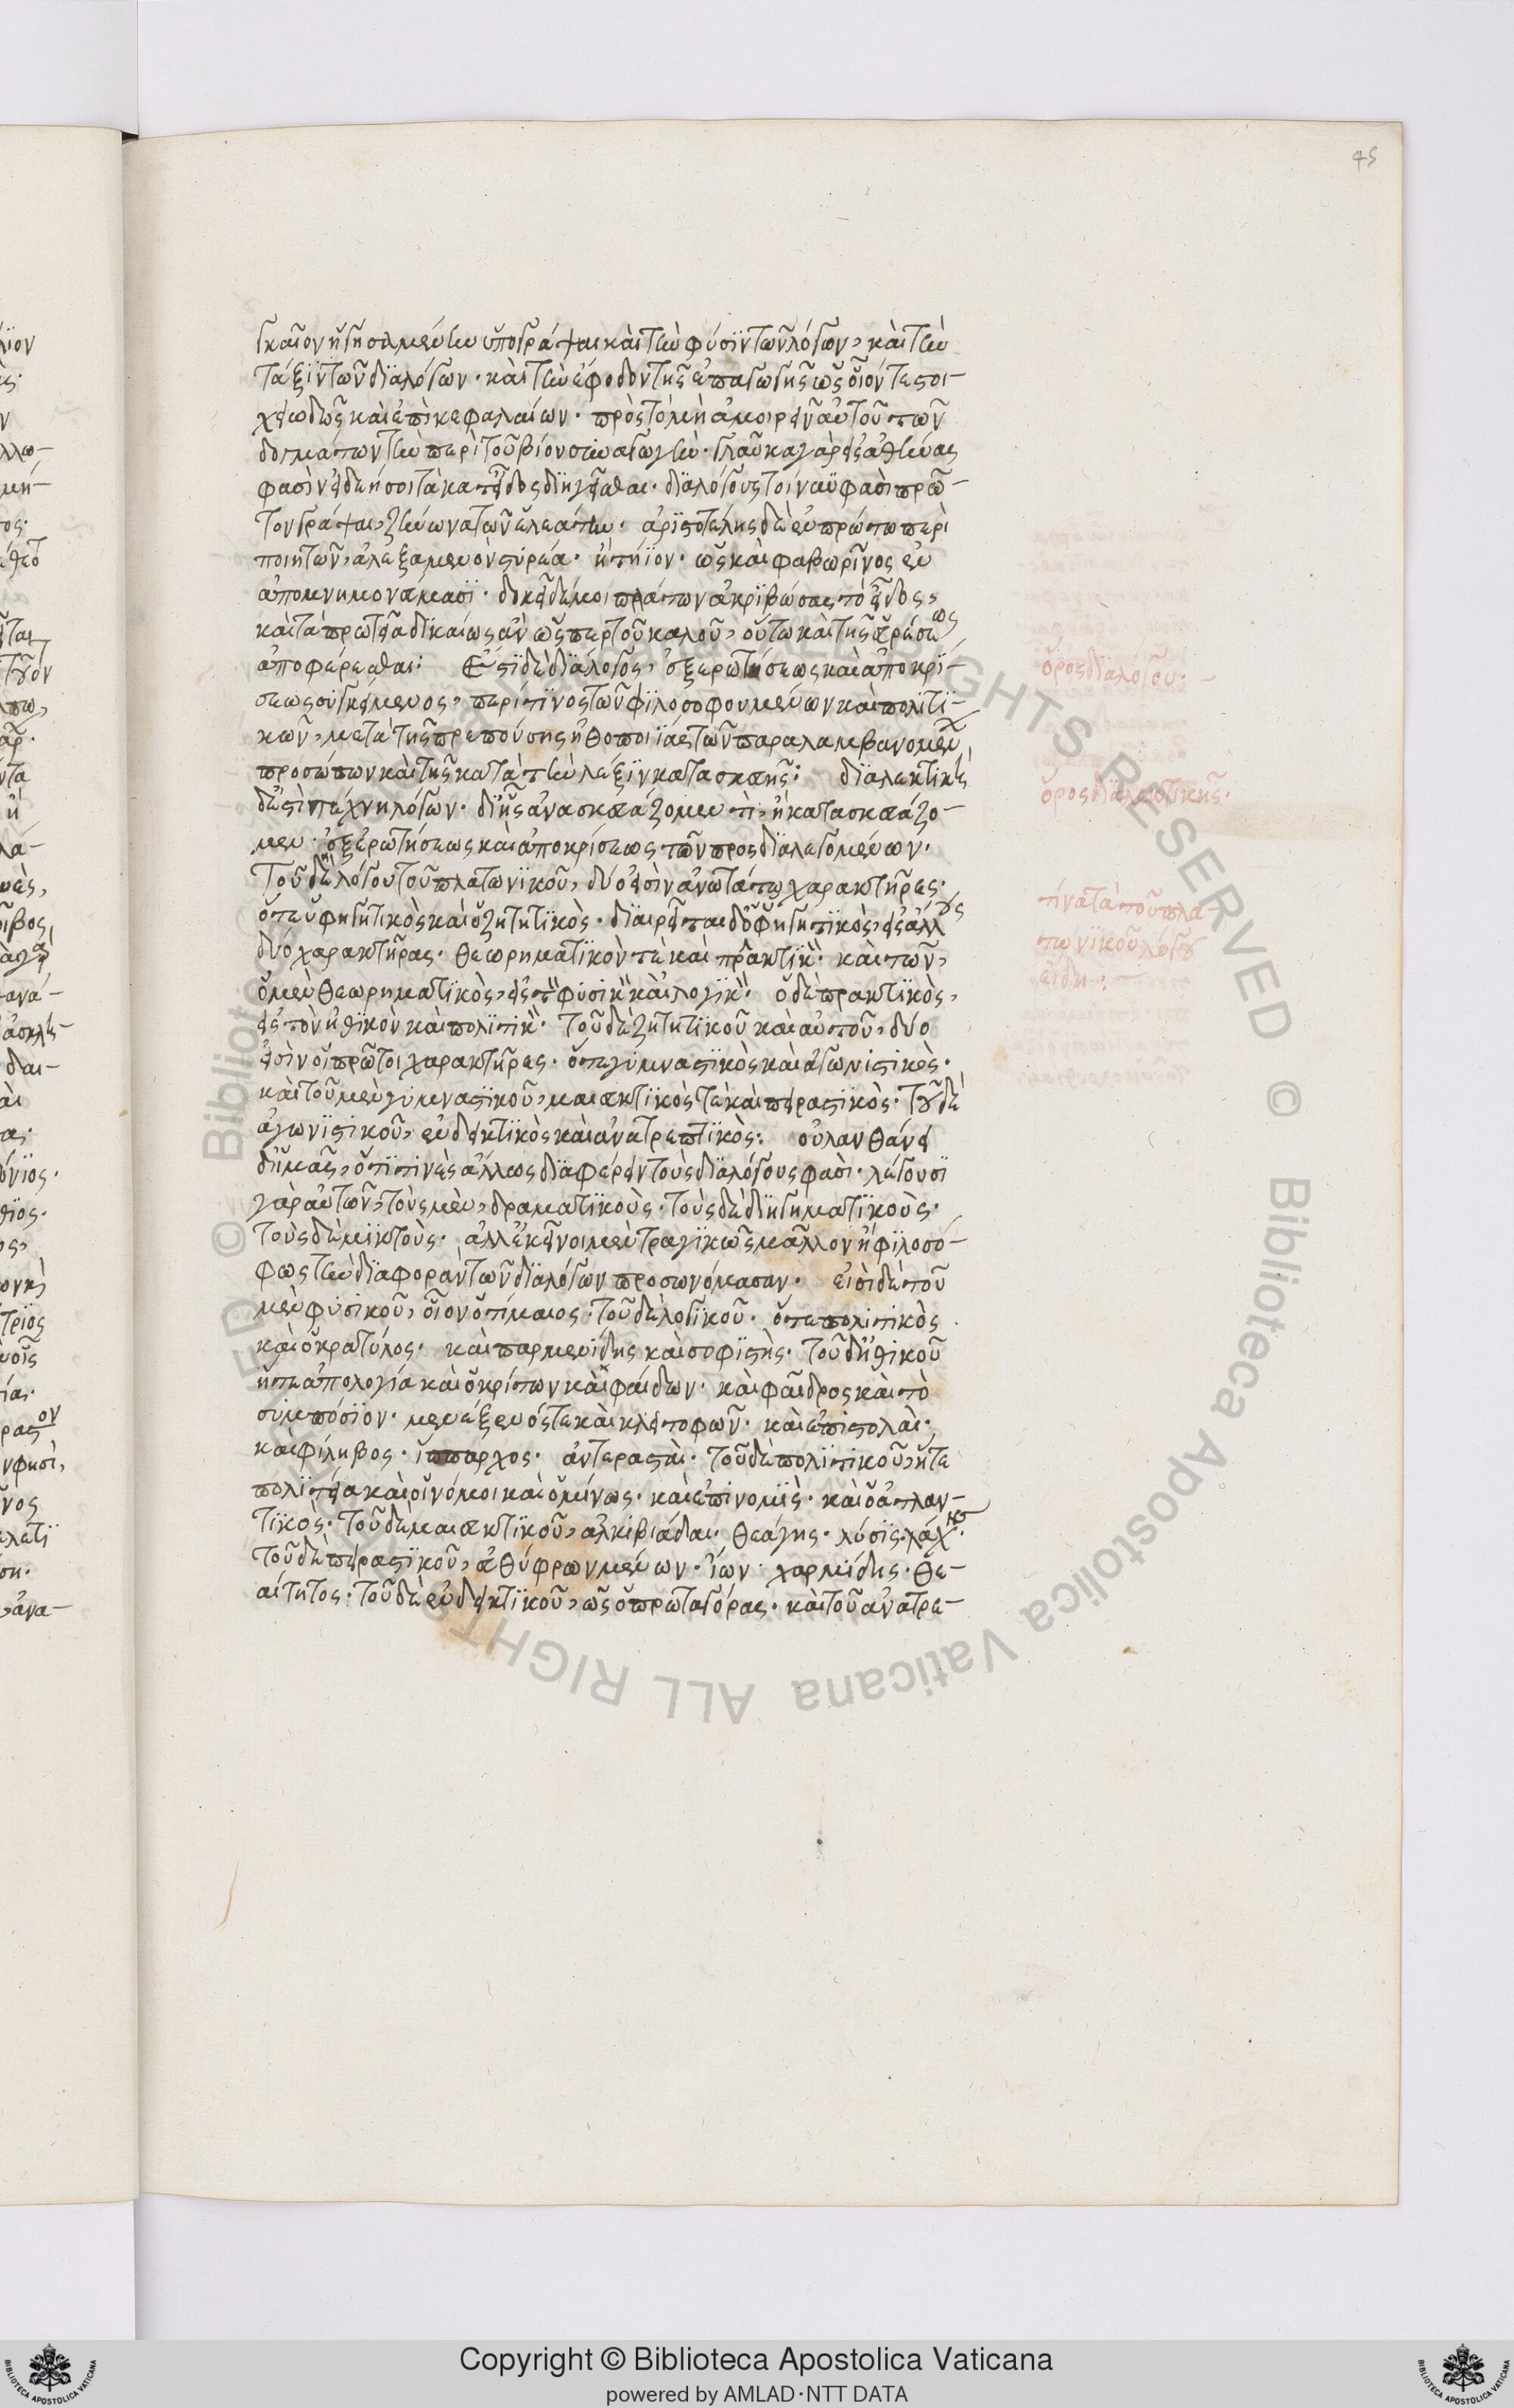 45
γκαῖον ἡγησάμην ὑπογράψαι καὶ τὴν φύσϊν τῶν λόγων, καὶ τὴν
τάξϊν τῶν δϊαλόγων. καὶ τὴν ἔφοδον τῆς ἐπαγωγῆς ὡς οἷόν τε στοι-
χειωδῶς καὶ ἐπὶ κεφαλαίων. πρὸς τὸ μὴ ἀμοιρεῖν αὐτοῦ τῶν
δογμάτων τὴν περὶ τοῦ βίου συναγωγὴν. γλαῦκα γὰρ εἰς ἀθήνας
φασὶν εἰ δεήσοι τὰ κατ' εἶδος διηγεῖσθαι. δϊαλόγους τοίνυν φασὶ πρῶ-
τον γράψαι, ζήνωνα τὸν ἐλεάτην. ἀρϊστοτέλης δὲ ἐν πρώτω περὶ
ποιητῶν, ἀλεξαμενὸν στυρέα. ἢ τήϊον. ὡς καὶ φαβωρῖνος ἐν
ἀπομνημονεύμασϊ. δοκεῖ δέ μοι πλάτων ἀκρϊβώσας τὸ εἶδος,
καὶ τὰ πρωτεῖα δικαίως ἂν ὥσπερ τοῦ κάλλους, οὕτω καὶ τῆς εὑρέσεως
ἀποφέρεσθαι: Ἔστϊ δὲ δϊάλογος, ἐξ ἐρωτήσεως καὶ ἀποκρϊ-
σεως συγκείμενος, περί τϊνος τῶν φϊλοσοφουμένων καὶ πολϊτϊ-
κῶν, μετὰ τῆς πρεπούσης ἠθοποιϊας τῶν παραλαμβανομένων
προσώπων καὶ τῆς κατὰ τὴν λέξϊν κατασκευῆς: δϊαλεκτϊκὴ
δ' ἐστὶ τέχνη λόγων. δϊ ἧς ἀνασκευάζομέν τι, ἢ κατασκευάζο-
μεν. ἐξ ἐρωτήσεως καὶ ἀποκρίσεως τῶν προσδϊαλεγομένων.
Τοῦ δὲ λόγου τοῦ πλατωνϊκοῦ, δύο εἰσὶν ἀνωτάτω χαρακτῆρες.
ὅ τε ὑφηγητικὸς καὶ ὁ ζητητϊκὸς. δϊαιρεῖται δὲ ὁ ὑφηγητϊκὸς, εἰς ἄλλους
δύο χαρακτῆρας. θεωρηματϊκὸν τὲ καὶ πρακτϊκ. καὶ τῶν,
ὁ μὲν θεωρηματϊκὸς, εἰς τ φυσικ καὶ λογϊκ. ὁ δὲ πρακτϊκὸς,
εἰς τὸν ἠθϊκὸν καὶ πολϊτϊκ. τοῦ δὲ ζητητϊκοῦ καὶ αὐτοῦ, δύο
εἰσὶν οἱ πρῶτοι χαρακτῆρες. ὅ τε γυμναστϊκὸς καὶ ἀγωνιστικὸς.
καὶ τοῦ μὲν γυμναστϊκοῦ, μαιευτϊκὸς τὲ καὶ πειραστϊκὸς. τοῦ δὲ
ἀγωνϊστικοῦ, ἐνδεικτϊκὸς καὶ ἀνατρεπτϊκὸς: οὐ λανθάνει
δ' ἡμᾶς, ὅτϊ τϊνὲς ἄλλως δϊαφέρειν τοὺς δϊαλόγους φασὶ. λέγουσϊ
γὰρ αὐτῶν, τοὺς μὲν, δραματϊκοὺς. τοὺς δὲ δϊηγηματϊκοὺς.
τοὺς δὲ μϊκτοὺς. ἀλλ' ἐκεῖνοι μὲν τραγϊκῶς μᾶλλον ἢ φϊλοσό-
φως τὴν δϊαφορὰν τῶν δϊαλόγων προσωνόμασαν. εἰσὶ δὲ τοῦ
μὲν φυσικοῦ, οἷον ὁ τίμαιος. τοῦ δὲ λογϊκοῦ. ὅ τε πολιτικὸς
καὶ ὁ κρατύλος. καὶ παρμενίδης καὶ σοφϊστὴς. τοῦ δ' ἠθικοῦ
ἥ τε ἀπολογία καὶ ὁ κρίτων καὶ φαίδων. καὶ φαῖδρος καὶ τὸ
συμπόσϊον. μενέξενός τε καὶ κλειτοφῶν. καὶ ἐπιστολαὶ.
καὶ φίληβος. ἵππαρχος. ἀντερασταὶ. τοῦ δὲ πολϊτικοῦ, ἥ τε
πολϊτεία καὶ οἱ νόμοι καὶ ὁ μίνως. καὶ ἐπινομὶς. καὶ ὁ ἀτλαν-
τϊκὸς. τοῦ δὲ μαιευτϊκοῦ, ἀλκιβιάδαι. θεάγης. λύσϊς. λάχης.
τοῦ δὲ πειραστϊκοῦ, εὐθύφρων μένων. ἴων. χαρμίδης. θε-
αίτητος. τοῦ δὲ ἐνδεικτϊκοῦ, ὡς ὁ πρωταγόρας. καὶ τοῦ ἀνατρε-
ὅρος δϊαλόγου.
ὅρος δϊαλεκτικῆς.
τίνα τὰ τοῦ πλα-
τωνϊκοῦ λόγου
εἴδη.
Copyright © Biblioteca Apostolica Vaticana
powered by AMLAD·NTT DATA